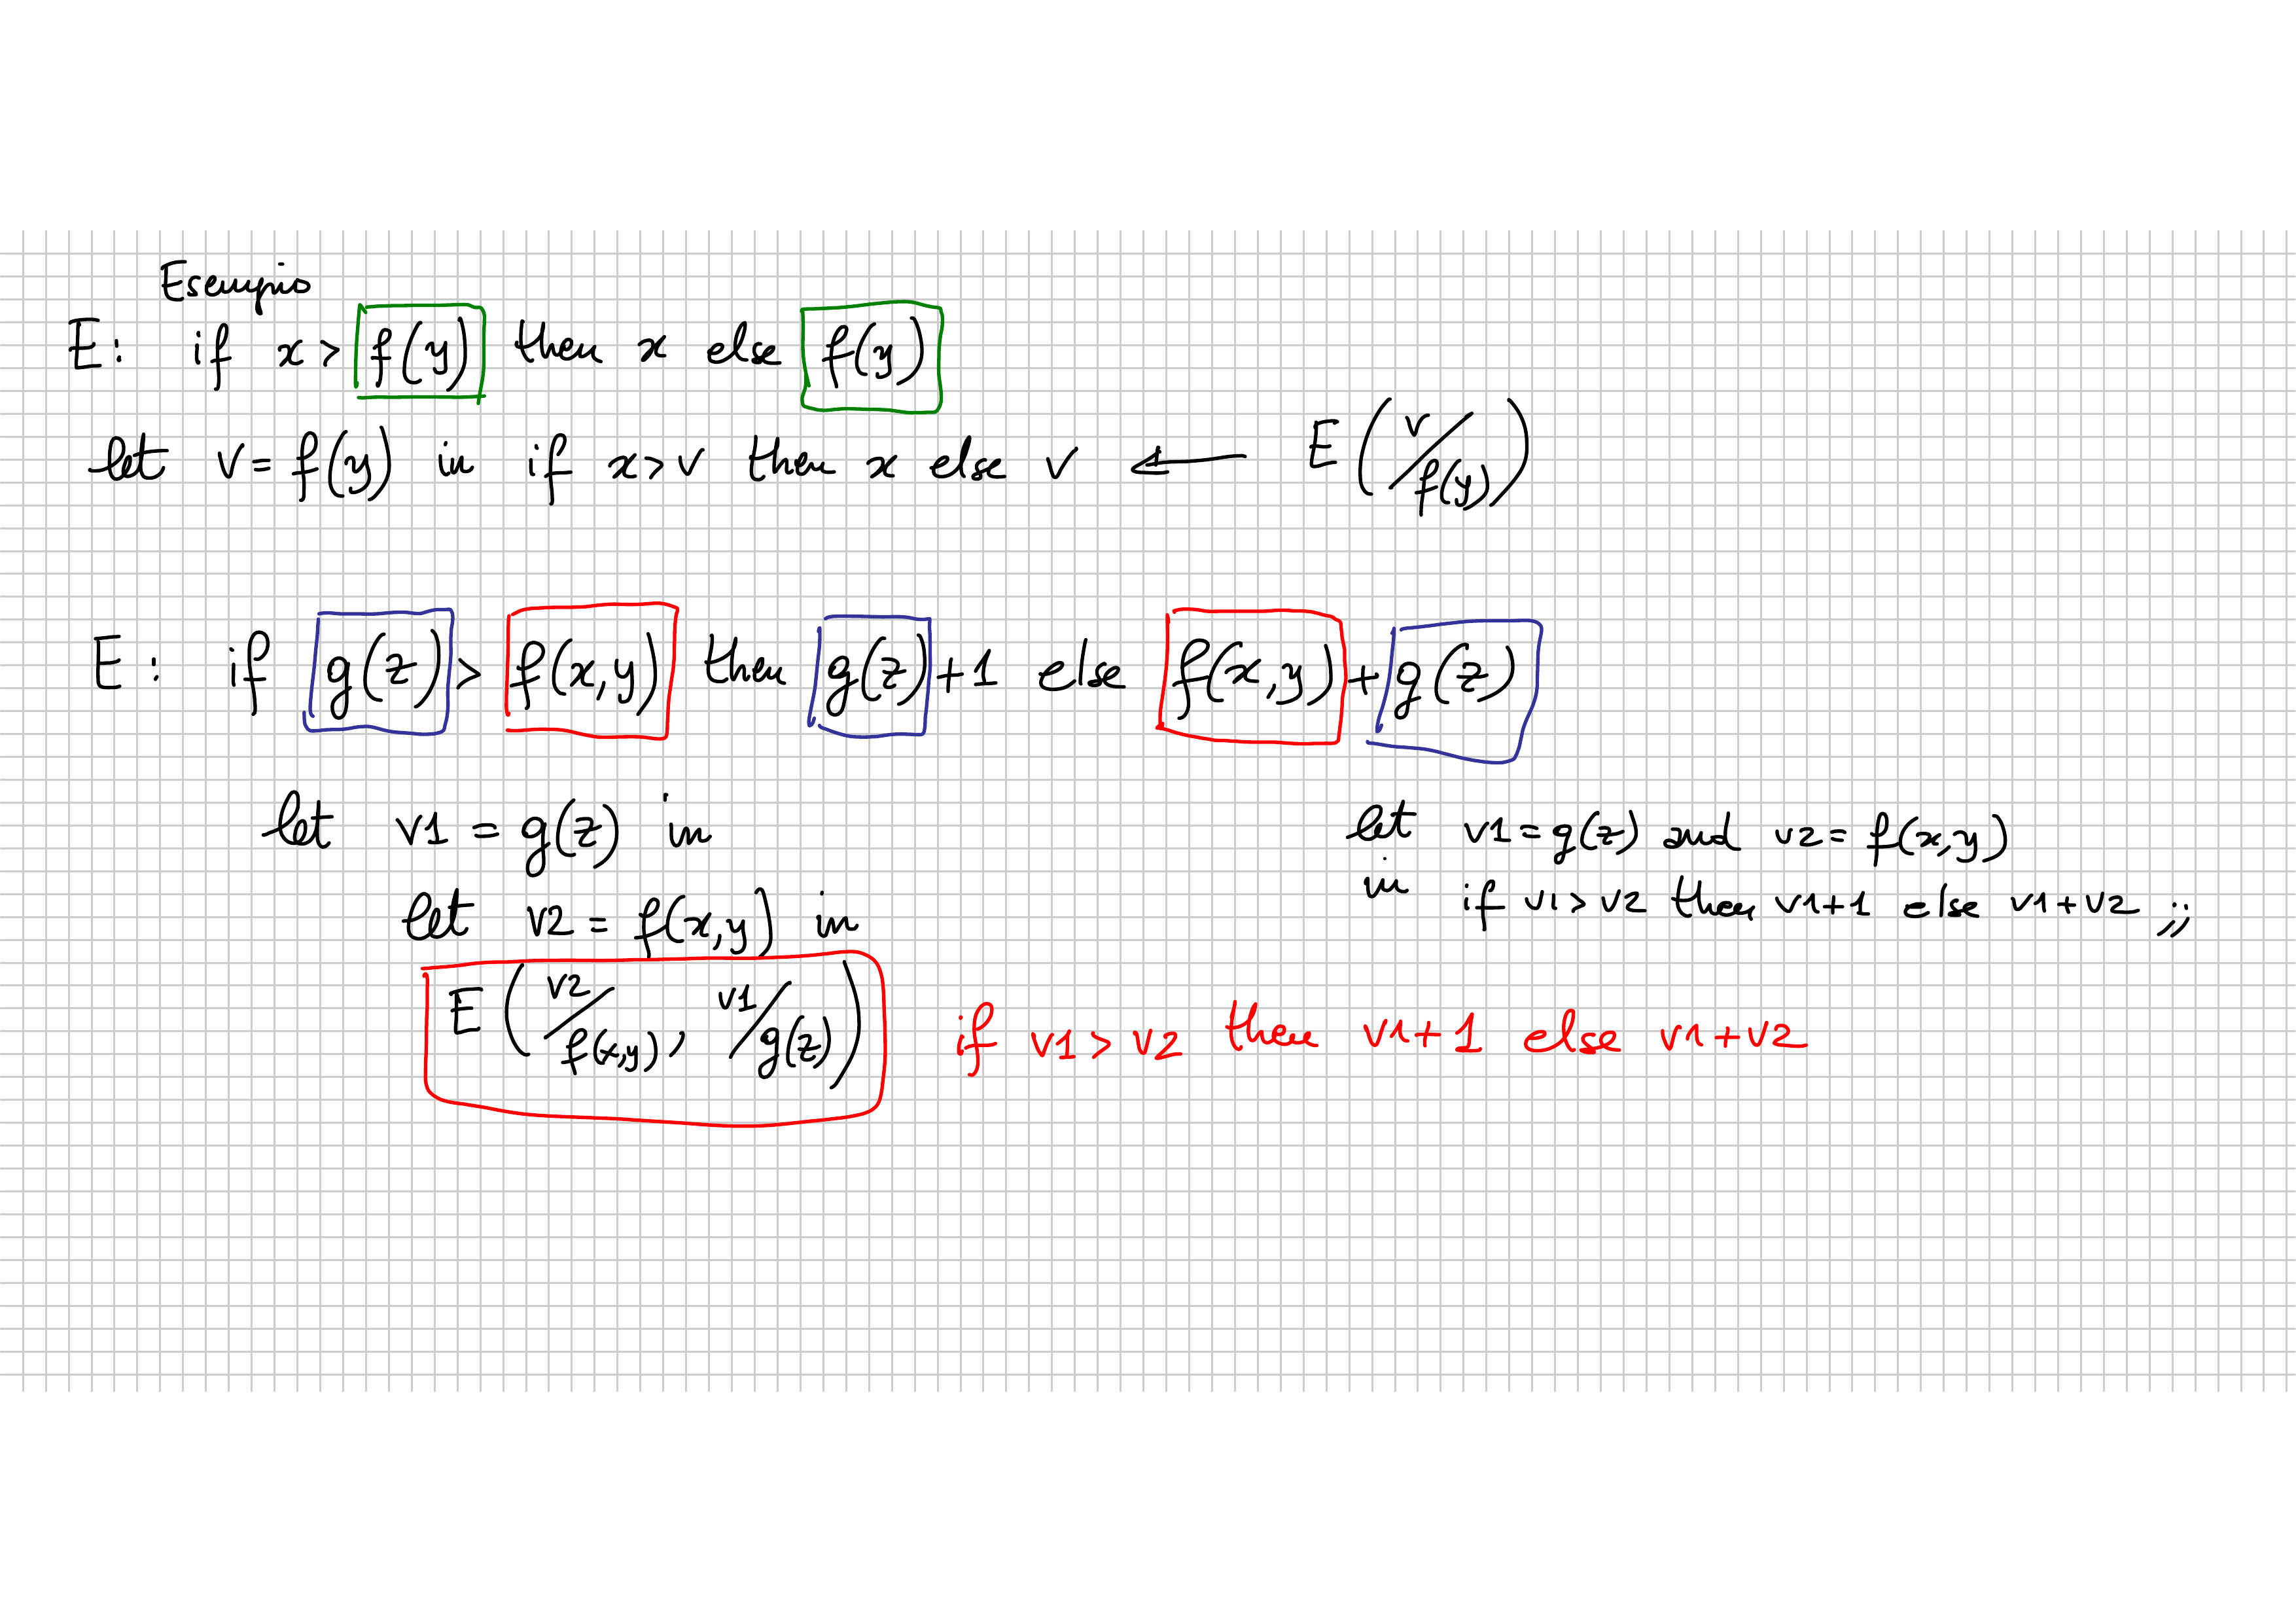 Esempio
E: if x > f(y) then x else f(y)
let v = f(y) in if x > v then x else v ⟸ E(v/f(y))
E: if g(z) > f(x,y) then g(z)+1 else f(x,y)+g(z)
let v1 = g(z) in
let v2 = f(x,y) in
E(v2/f(x,y), v1/g(z)) if v1 > v2 then v1+1 else v1+v2
let v1=g(z) and v2=f(x,y)
in if v1>v2 then v1+1 else v1+v2 ;;